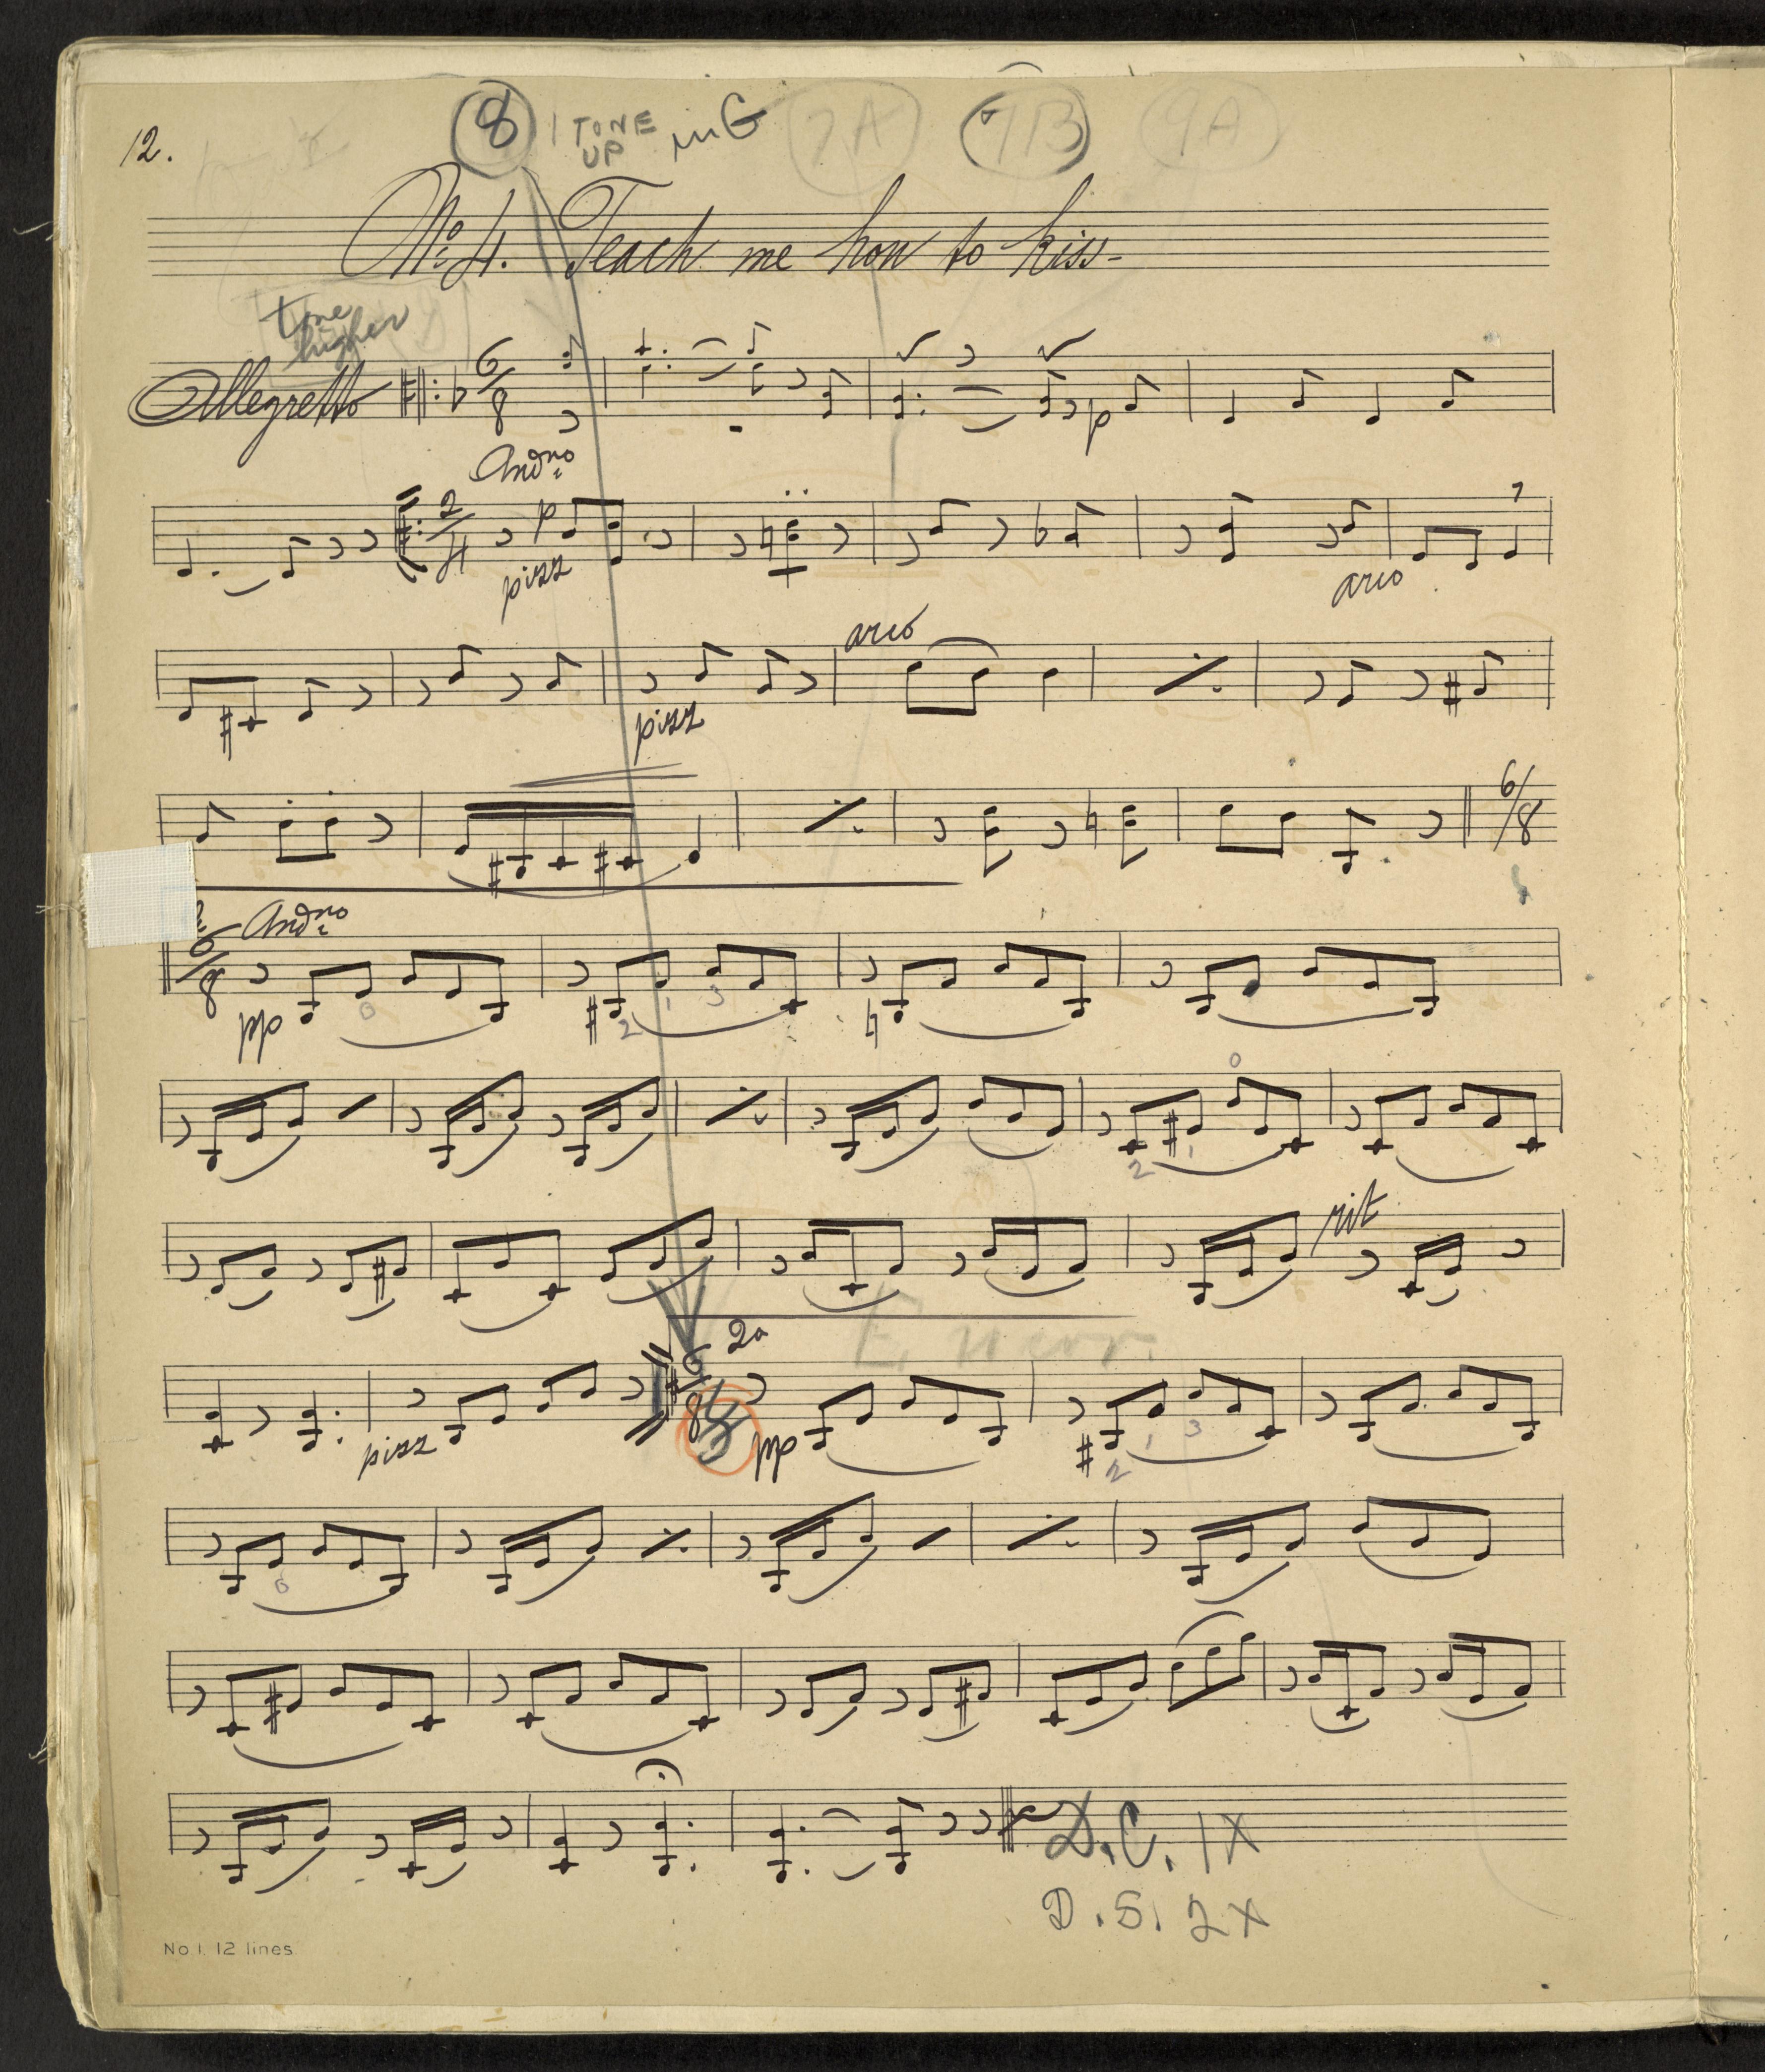 12. 8 1 TONE UP in G 7A 7B 9A
No. 4. Teach me how to kiss-
tone higher
Allegretto 6/8 p
Andno
2/4 p pizz arco
arco
pizz
6/8
6/8 Andno
pp 0 2 1 3
0
2 1
rit
2a
6/8
pizz pp 1 3
2
0
D.C. 1X
D.S. 2X
No 1. 12 lines